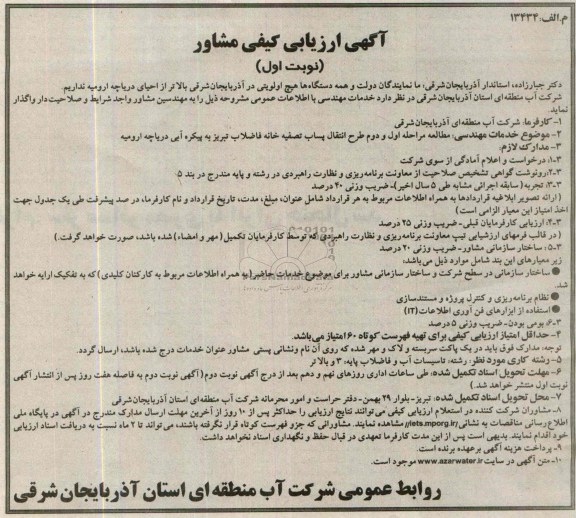 م.الف: ۱۳۴۳۴
آگهی ارزیابی کیفی مشاور
(نوبت اول)
دکتر جبارزاده، استاندار آذربایجان‌شرقی: ما نمایندگان دولت و همه دستگاه‌ها هیچ اولویتی در آذربایجان‌شرقی بالاتر از احیای دریاچه ارومیه نداریم.
شرکت آب منطقه‌ای استان آذربایجان‌شرقی در نظر دارد خدمات مهندسی با اطلاعات عمومی مشروحه ذیل را به مهندسین مشاور واجد شرایط و صلاحیت‌دار واگذار
نماید.
۱- کارفرما: شرکت آب منطقه‌ای آذربایجان‌شرقی
۲- موضوع خدمات مهندسی: مطالعه مراحل اول و دوم طرح انتقال پساب تصفیه خانه فاضلاب تبریز به پیکره آبی دریاچه ارومیه
۳- مدارک لازم:
۳-۱: درخواست و اعلام آمادگی از سوی شرکت
۳-۲: رونوشت گواهی تشخیص صلاحیت از معاونت برنامه‌ریزی و نظارت راهبردی در رشته و پایه مندرج در بند ۵
۳-۳: تجربه (سابقه اجرائی مشابه طی ۵ سال اخیر)- ضریب وزنی ۴۰ درصد
( ارائه تصویر ابلاغیه قراردادها به همراه اطلاعات مربوط به هر قرارداد شامل عنوان، مبلغ، مدت، تاریخ قرارداد و نام کارفرما، در صد پیشرفت طی یک جدول جهت
اخذ امتیاز این معیار الزامی است)
۳-۴: ارزیابی کارفرمایان قبلی- ضریب وزنی ۲۵ درصد
( در قالب فرمهای ارزشیابی تیپ معاونت برنامه‌ریزی و نظارت راهبردی که توسط کارفرمایان تکمیل (مهر و امضاء) شده باشد، صورت خواهد گرفت.)
۳-۵: ساختار سازمانی مشاور- ضریب وزنی ۲۰ درصد
زیر معیارهای این بند شامل موارد ذیل می‌باشد:
● ساختار سازمانی در سطح شرکت و ساختار سازمانی مشاور برای موضوع خدمات حاضر (به همراه اطلاعات مربوط به کارکنان کلیدی) که به تفکیک ارایه خواهد
شد.
● نظام برنامه‌ریزی و کنترل پروژه و مستندسازی
● استفاده از ابزارهای فن آوری اطلاعات (IT)
۳-۶: بومی بودن- ضریب وزنی ۵ درصد
۴- حداقل امتیاز ارزیابی کیفی برای تهیه فهرست کوتاه ۶۰ امتیاز می‌باشد.
توجه: مدارک فوق باید در یک پاکت سربسته و لاک و مهر شده که روی آن نام ونشانی پستی مشاور عنوان خدمات درج شده باشد، ارسال گردد.
۵- رشته کاری مورد نظر: رشته: تاسیسات آب و فاضلاب پایه: ۳ و بالاتر
۶- مهلت تحویل اسناد تکمیل شده: طی ساعات اداری روزهای نهم و دهم بعد از درج آگهی نوبت دوم ( آگهی نوبت دوم به فاصله هفت روز پس از انتشار آگهی
نوبت اول منتشر خواهد شد.)
۷- محل تحویل اسناد تکمیل شده: تبریز- بلوار ۲۹ بهمن- دفتر حراست و امور محرمانه شرکت آب منطقه‌ای استان آذربایجان‌شرقی
۸- مشاوران شرکت کننده در استعلام ارزیابی کیفی می‌توانند نتایج ارزیابی را حداکثر پس از ۱۰ روز از آخرین مهلت ارسال مدارک مندرج در آگهی در پایگاه ملی
اطلاع رسانی مناقصات به نشانی //iets.mporg.ir مشاهده نمایند. مشاورانی که جزو فهرست کوتاه قرار نگرفته باشند، می‌تواند تا ۲ ماه نسبت به دریافت اسناد ارزیابی
خود اقدام نمایند. بدیهی است پس از این مدت کارفرما تعهدی در قبال حفظ و نگهداری اسناد نخواهد داشت.
۹- پرداخت هزینه آگهی برعهده برنده است.
۱۰- متن آگهی در سایت www.azarwater.ir موجود است.
روابط عمومی شرکت آب منطقه ای استان آذربایجان شرقی